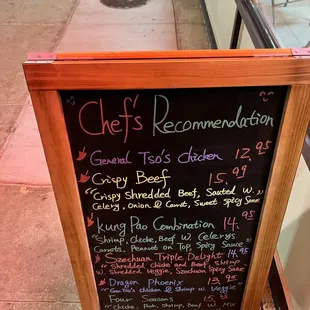 Chef's Recommendation
General Tso's Chicken 12.95
Crispy Beef 15.99
"Crispy Shredded Beef, Sauted W.
Celery, Onion & Carrot, Sweet Spicy Sauce"
Kung Pao Combination 14.95
"Shrimp, Chicke, Beef W. Celerys
Carrots, Peanuet on Top, Spicy Sauce"
Szechuan Triple Delight 14.95
"Shredded Chicke and Beef, Shrimp
W. Shredded Veggie, Szechuan Spicy Sauce"
Dragon Phoenix 13.95
"Gen Tso's chicken & Shrimp W. Veggie"
Four Seasons
Pork, Shrimp, Beef W. Mix